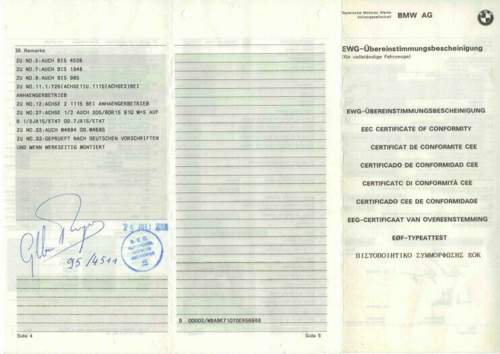 38. Remarks
ZU NO.5:AUCH BIS 4526
ZU NO.7:AUCH BIS 1848
ZU NO.8:AUCH BIS 985
ZU NO.11.1:725(ACHSE1)U.1115(ACHSE2)BEI
ANHAENGERBETRIEB
ZU NO.12:ACHSE 2 1115 BEI ANHAENGERBETRIEB
ZU NO.27:ACHSE 1/2 AUCH 205/60R15 M+S AUF
6 1/2JX15/ET47 OD.7JX15/ET47
ZU NO.33:AUCH W4684 OD.W4685
ZU NO.33:GEPRUEFT NACH DEUTSCHEN VORSCHRIFTEN
UND WENN WERKSEITIG MONTIERT
95/4511
Seite 4
Seite 5
Bayerische Motoren Werke
Aktiengesellschaft
BMW AG
EWG-Übereinstimmungsbescheinigung
(für vollständige Fahrzeuge)
EWG-ÜBEREINSTIMMUNGSBESCHEINIGUNG
EEC CERTIFICATE OF CONFORMITY
CERTIFICAT DE CONFORMITE CEE
CERTIFICADO DE CONFORMIDAD CEE
CERTIFICATO DI CONFORMITÀ CEE
CERTIFICADO CEE DE CONFORMIDADE
EEG-CERTIFICAAT VAN OVEREENSTEMMING
EØF-TYPEATTEST
ΠΙΣΤΟΠΟΙΗΤΙΚΟ ΣΥΜΜΟΡΦΩΣΗΣ ΕΟΚ